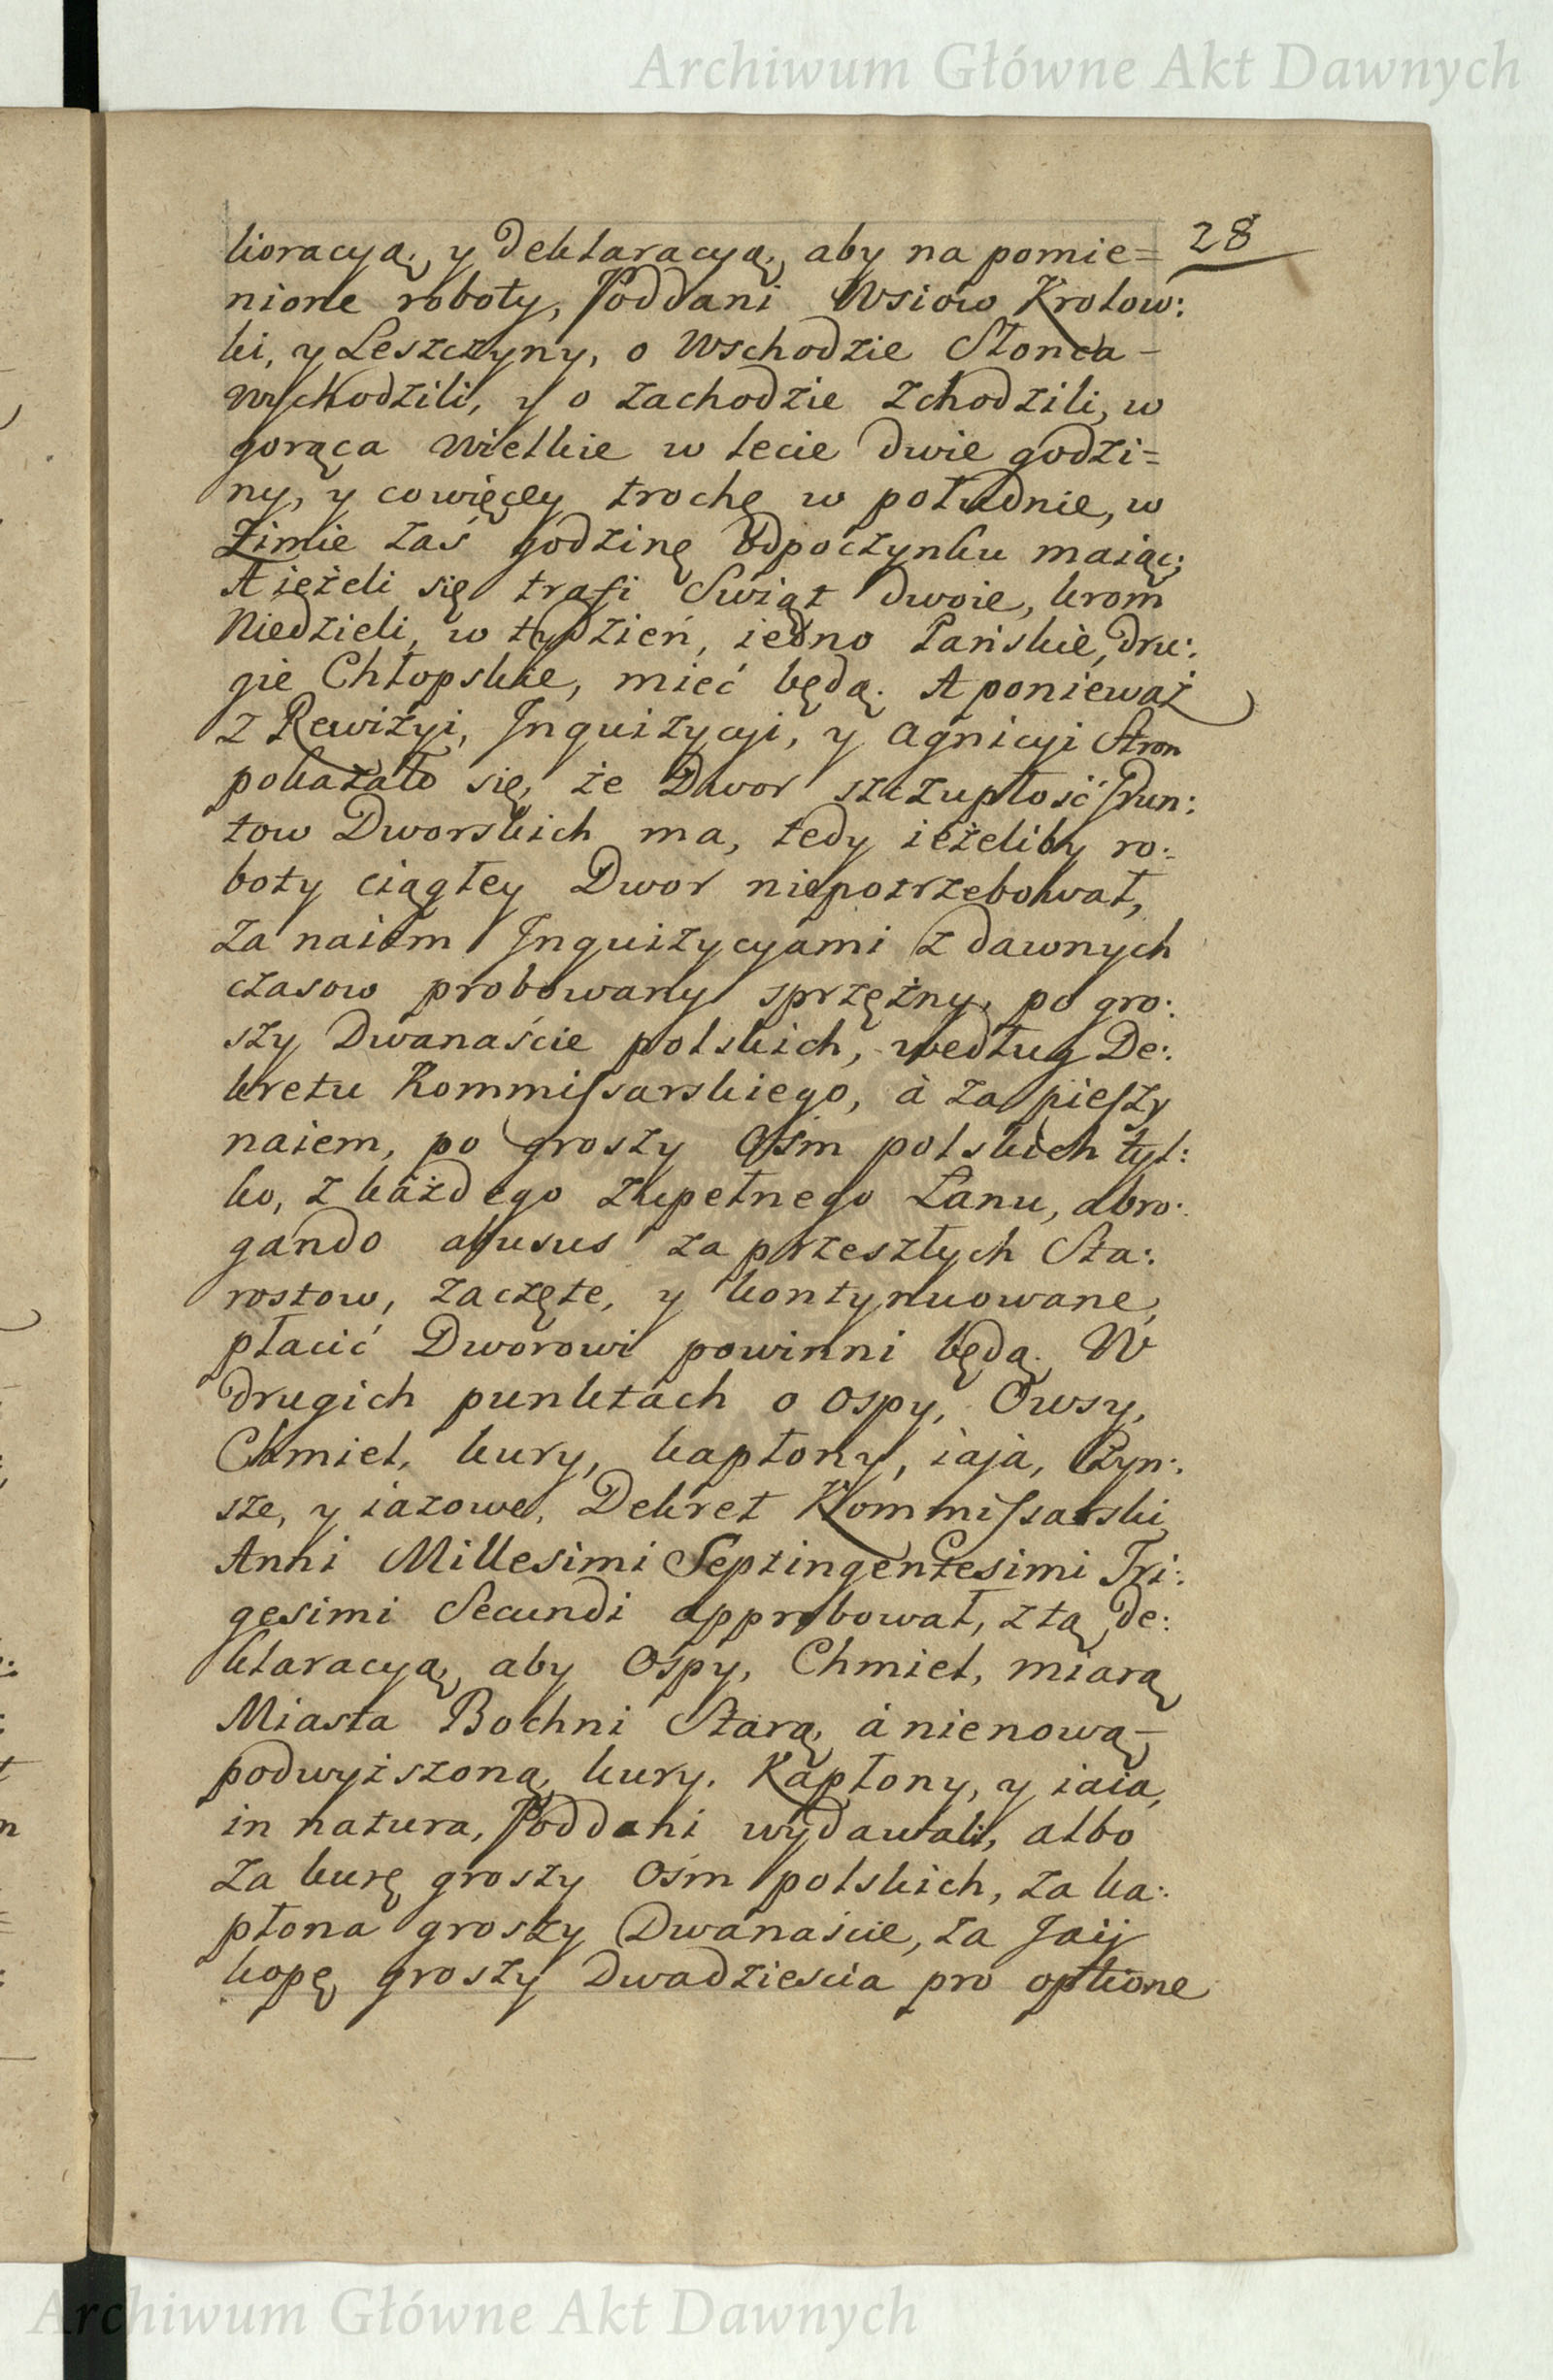 Archiwum Główne Akt Dawnych
28
lioracyą, y deklaracyą, aby na pomie=
nione roboty, Poddani Wsiow Krolow:
ki, y Leszczyny, o Wschodzie Słonca -
wychodzili, y o zachodzie zchodzili, w
gorąca wielkie w lecie dwie godzi=
ny, y cowięcey trochę w południe, w
Zimie zaś godzinę odpoczynku maiąc;
A ieżeli się trafi Swiąt dwoie, krom
Niedzieli, w tydzień, iedno Pańskie, dru:
gie Chłopskie, mieć będą. A ponieważ
z Rewizyi, Inquizycyi, y Agnicyi Stron
pokazało się, że Dwor szczupłość Grun:
tow Dworskich ma, tedy ieżeliby ro:
boty ciągłey Dwor niepotrzebował,
za naiem Inquizycyami z dawnych
czasow probowany sprzężny, po gro:
szy Dwanaście polskich, według De:
kretu Kommissarskiego, à za pieszy
naiem, po groszy Ośm polskich tyl:
ko, z każdego zupełnego Łanu, abro:
gando abusus za przeszłych Sta:
rostow, zaczęte, y kontynuowane,
płacić Dworowi powinni będą. W
drugich punktach o ospy, Owsy,
Chmiel, kury, kapłony, iaja, Czyn:
sze, y iazowe, Dekret Kommissarski
Anni Millesimi Septingentesimi Tri:
gesimi Secundi approbował, z tą de:
klaracyą, aby Ospy, Chmiel, miarą
Miasta Bochni Starą, à nienową -
podwyższoną, kury, Kapłony, y iaia,
in natura, Poddani wydawali, albo
za kurę groszy Ośm polskich, za ka:
płona groszy Dwanaście, za Jaij
kopę groszy Dwadzieścia pro optione
Archiwum Główne Akt Dawnych